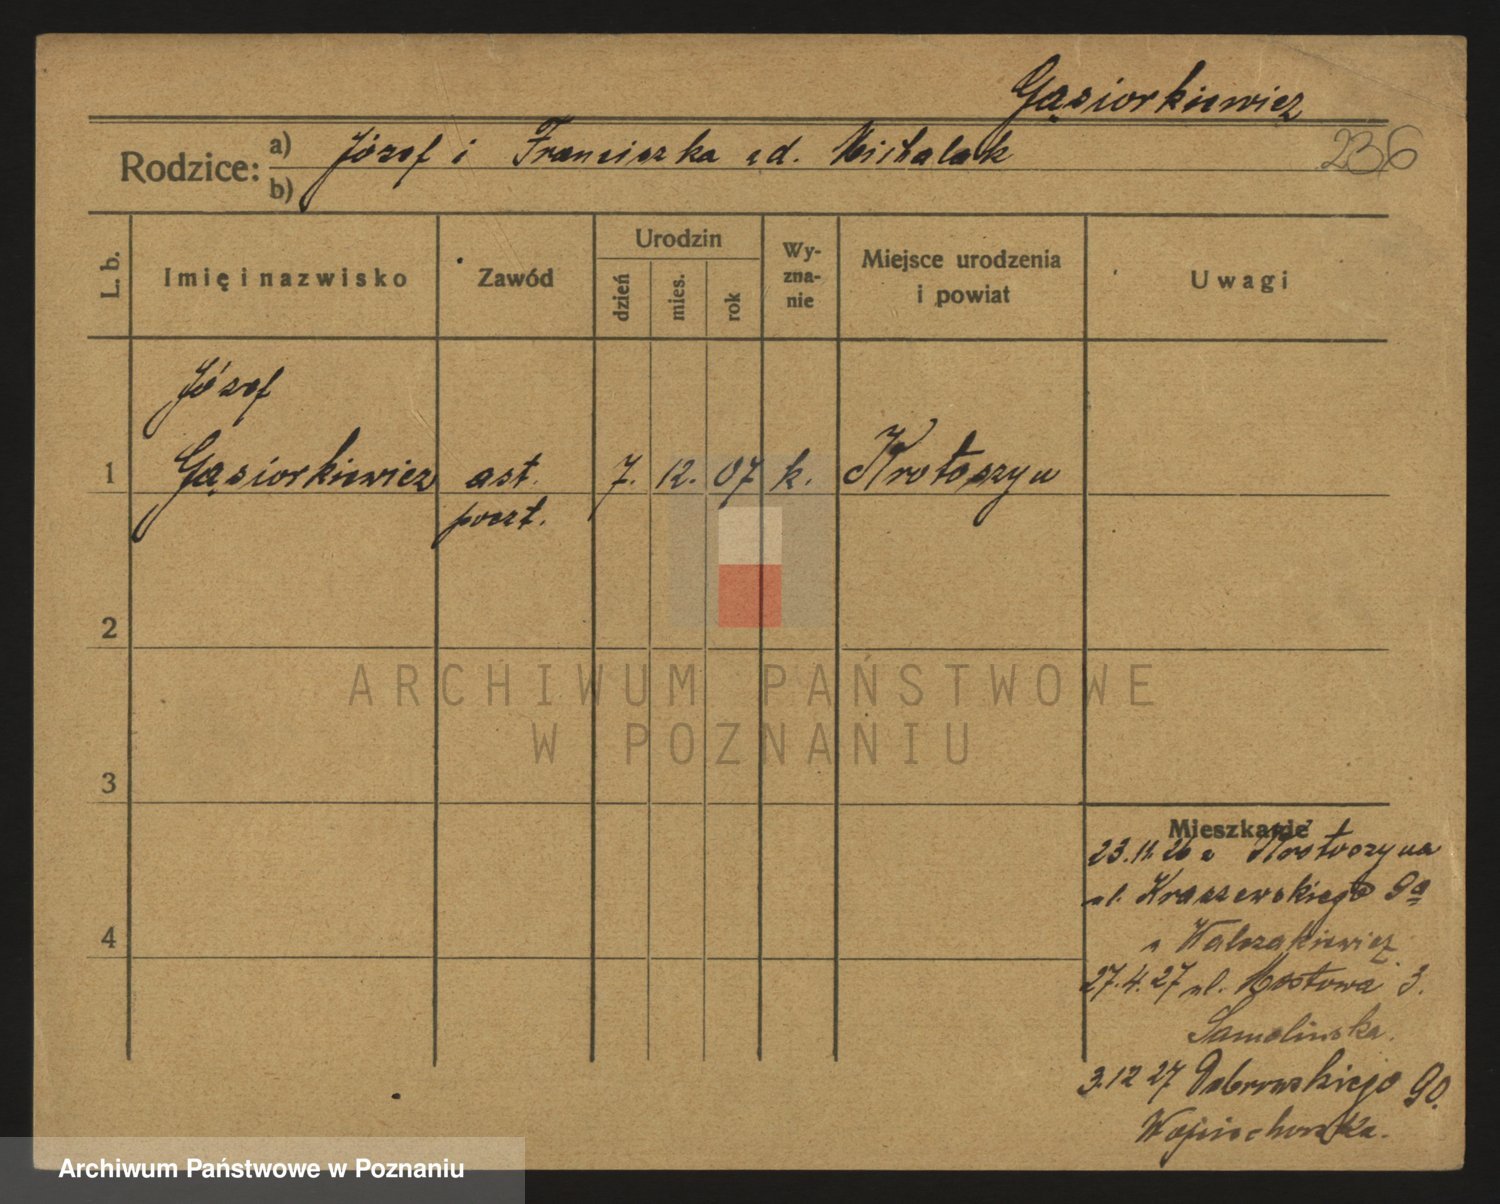 Gąsiorkiewicz
Rodzice: a) Józef i Franciszka z d. Michalak
b)
236
L. b.
Imię i nazwisko
Zawód
Urodzin
dzień
mies.
rok
Wy-
zna-
nie
Miejsce urodzenia
i powiat
Uwagi
Józef
1 Gąsiorkiewicz ast. 7. 12. 07 k. Krotoszyn
poczt.
2
3
4
ARCHIWUM PAŃSTWOWE
W POZNANIU
Mieszkanie
23.11.26 z Krotoszyna
ul. Kraszewskiego 9a
u Walczakiewicz
27.4.27 ul. Mostowa 3.
Samolińska.
3.12 27 Dąbrowskiego 90.
Wojciechowska.
Archiwum Państwowe w Poznaniu